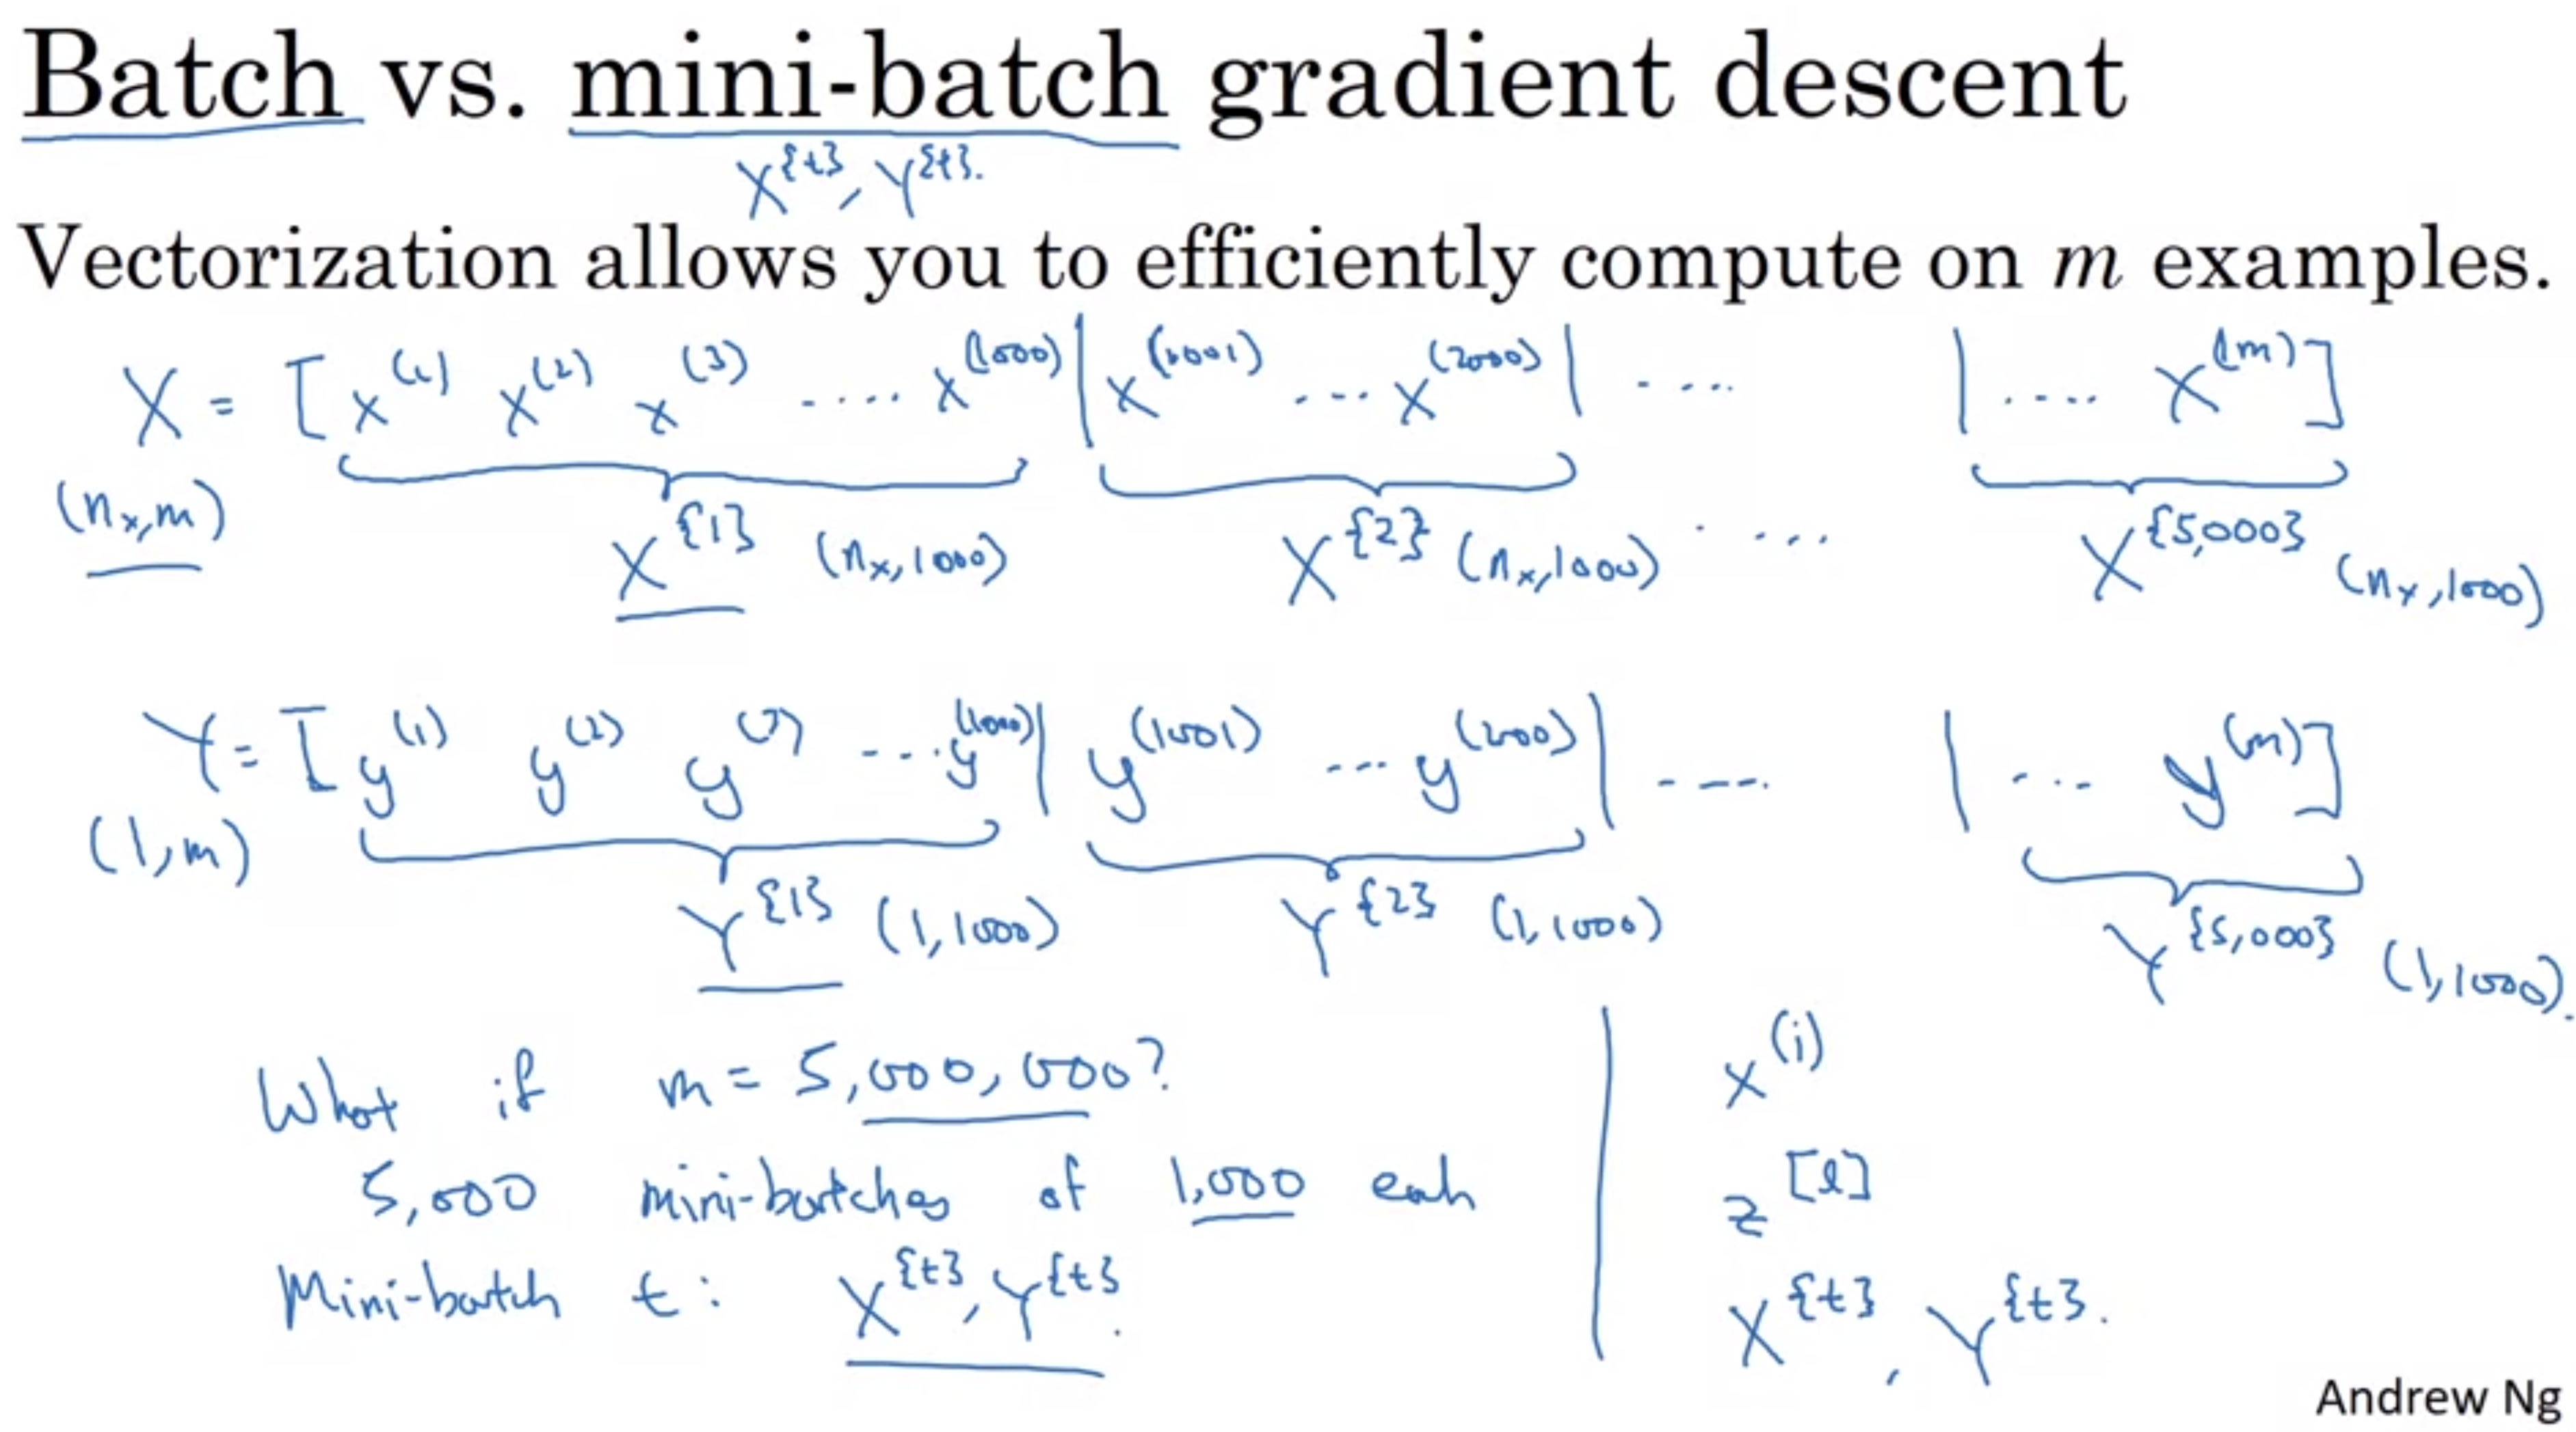 Batch vs. mini-batch gradient descent
X^{t}, Y^{t}.
Vectorization allows you to efficiently compute on m examples.
X = [x^(1) x^(2) x^(3) ..... x^(1000) | x^(1001) ... x^(2000) | .... | .... x^(m)]
(n_x, m) X^{1} (n_x, 1000) X^{2} (n_x, 1000) .... X^{5,000} (n_x, 1000)
Y = [y^(1) y^(2) y^(3) ... y^(1000) | y^(1001) ... y^(2000) | .... | ... y^(m)]
(1, m) Y^{1} (1, 1000) Y^{2} (1, 1000) Y^{5,000} (1, 1000).
What if m = 5,000,000?
5,000 mini-batches of 1,000 each
Mini-batch t: X^{t}, Y^{t}.
x^(i)
z^[l]
X^{t}, Y^{t}.
Andrew Ng